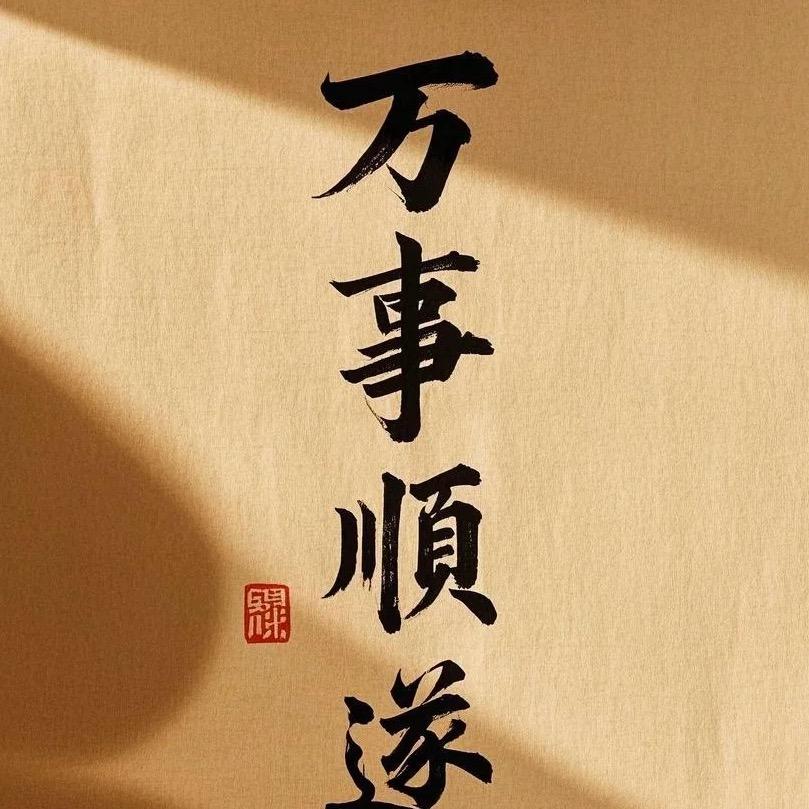 万事順遂